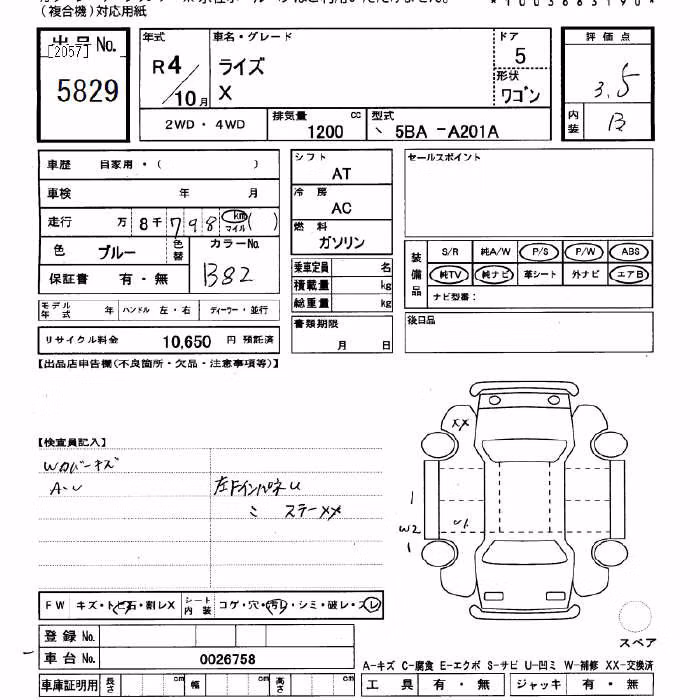 (複合機)対応用紙
出品No.
[2057]
5829
年式
R4/10月
車名・グレード
ライズ
X
ドア
5
形状
ワゴン
評価点
3.5
内装
B
2WD・4WD
排気量 cc
1200
型式
5BA -A201A
車歴 自家用・( )
車検 年 月
走行 万 8千798 km マイル ( )
色 ブルー
色替
カラーNo.
B82
保証書 有・無
モデル年式 年 ハンドル 左・右 ディーラー・並行
リサイクル料金 10,650 円 預託済
シフト
AT
冷房
AC
燃料
ガソリン
乗車定員 名
積載量 kg
総重量 kg
書類期限
月 日
セールスポイント
装備品
S/R 純A/W P/S P/W ABS
純TV 純ナビ 革シート 外ナビ エアB
ナビ型番:
後日品
【出品店申告欄(不良箇所・欠品・注意事項等)】
【検査員記入】
Wカバーキズ
A・U
左Fインパネ U
ミ ステーXX
XX
1
W2
U1
1
FW キズ・トビ石・割レX
シート内装 コゲ・穴・汚レ・シミ・破レ・スレ
登録No.
車台No. 0026758
車庫証明用 長さ cm 幅 cm 高さ cm
スペア
A-キズ C-腐食 E-エクボ S-サビ U-凹ミ W-補修 XX-交換済
工具 有・無 ジャッキ 有・無